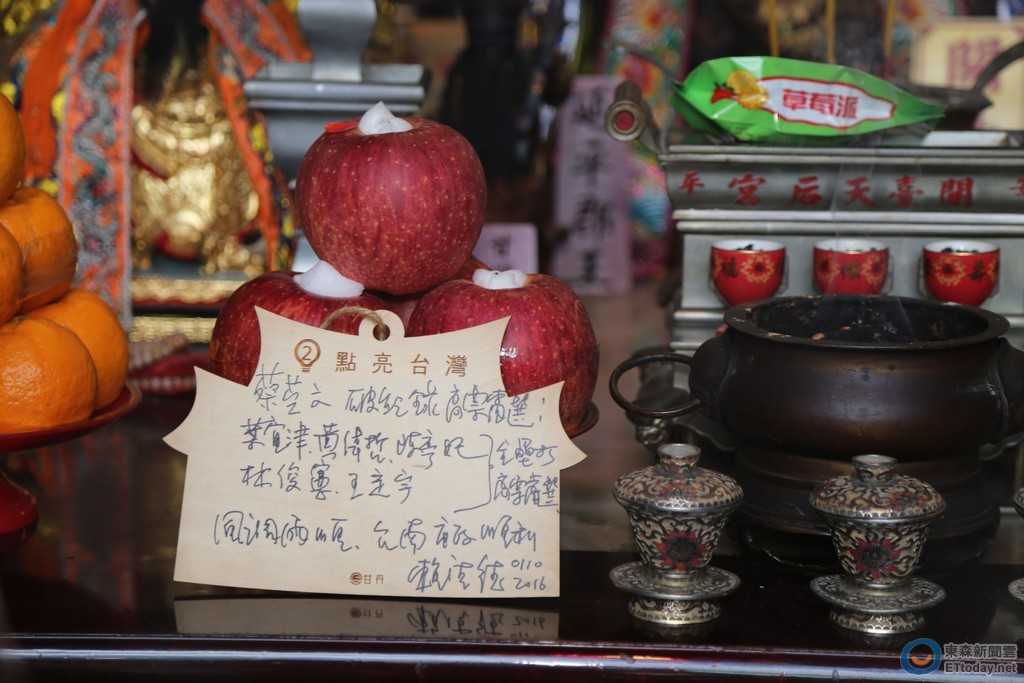 草莓派
平宮后天臺開
延平郡王
② 點亮台灣
蔡英文 破紀錄高票當選；
葉宜津.黃偉哲.陳亭妃
林俊憲.王定宇
全壘打
高票當選
風調雨順、台南市政順利
賴清德 0110
2016
甘丹
東森新聞雲
ETtoday.net